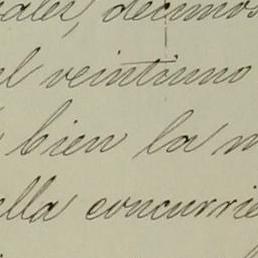 decimos
el veintiuno
bien la
ella concurrie